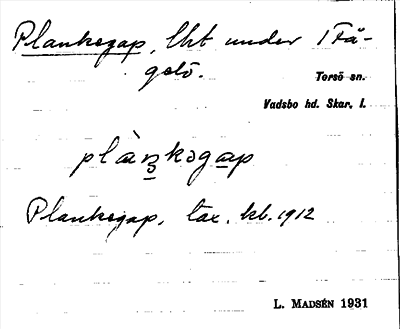 Plankegap, lht under 1 Få-
gelö.
Torsö sn.
Vadsbo hd. Skar. l.
plàŋkəgap
Plankegap, tax. kb. 1912
L. MADSÉN 1931